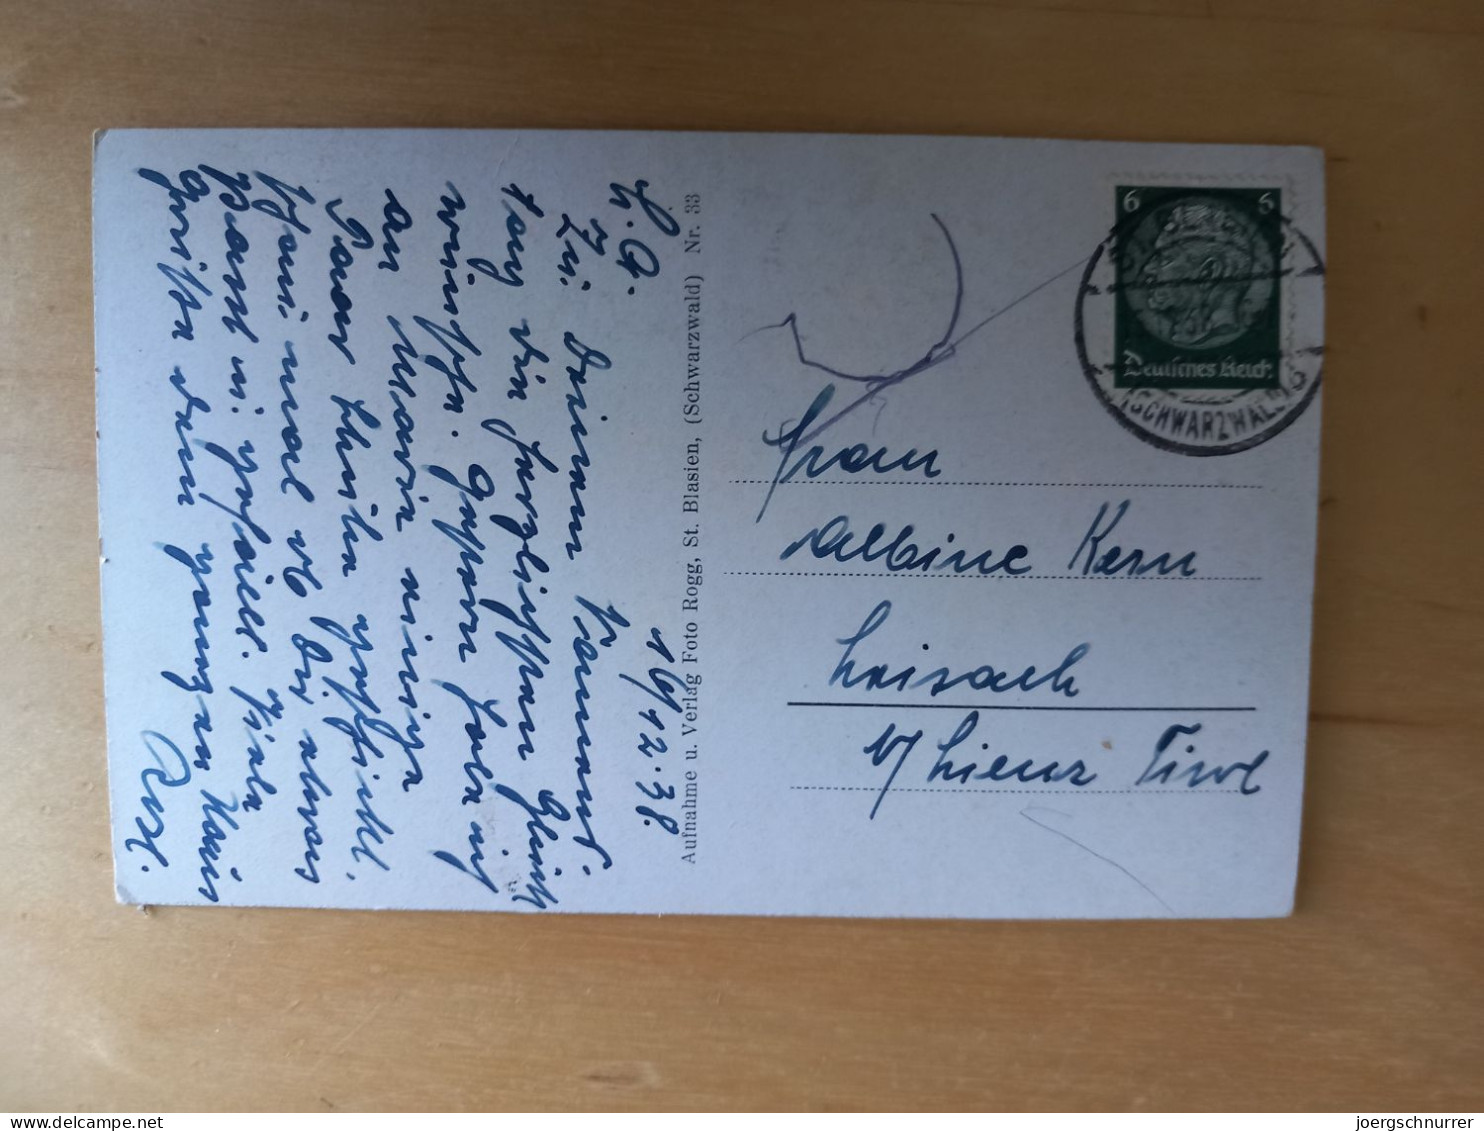 14/12.38.
L. A.
Zu Deinem Namens-
tag die herzlichsten Glück
wünsche. Gestern habe ich
an Marie einige
Paar geschickt.
Schau mal ob Dir etwas
passt u. gefällt. Viele
Grüße dem ganzen Haus
Resl.
Aufnahme u. Verlag Foto Rogg, St. Blasien, (Schwarzwald) Nr. 33
6 6
Deutsches Reich
(SCHWARZWALD)
Frau
Albine Kern
Leisach
b/ Lienz Tirol
delcampe.net
joergschnurrer